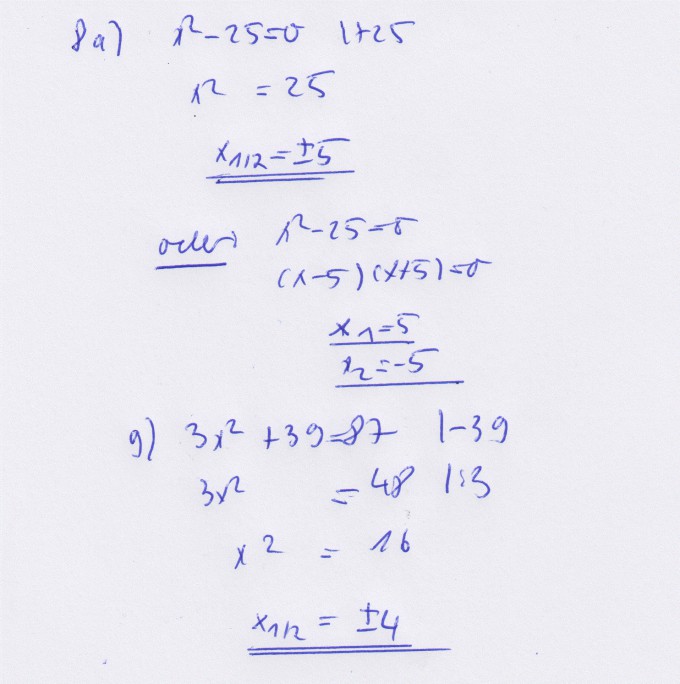 8a) x²-25=0 |+25
x² = 25
x1/2=±5
oder: x²-25=0
(x-5)(x+5)=0
x1=5
x2=-5
g) 3x² +39=87 |-39
3x² = 48 |:3
x² = 16
x1/2 = ±4